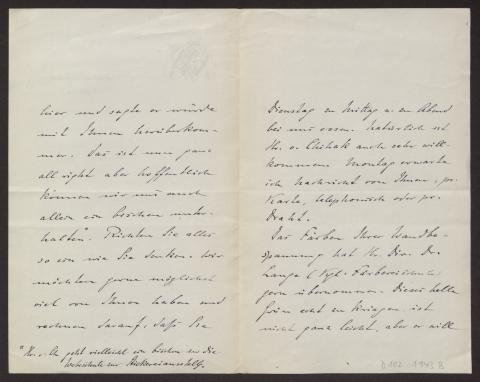 hier und sagte er würde
mit Ihnen herüberkom-
men. Das ist nun ganz
all right aber hoffentlich
können wir uns auch
allein ein bischen unter-
halten*. Richten Sie alles
so ein wie Sie denken. Wir
möchten gerne möglichst
viel von Ihnen haben und
rechnen darauf, daß Sie
* Hr. v. Ch. geht vielleicht ein bischen in die
Webeschule zur Stickereiausstellg.
Dienstag zu Mittag u. zu Abend
bei uns essen. Natürlich ist
Hr. v. Chihak auch sehr will-
kommen. Montag erwarte
ich Nachricht von Ihnen, pr.
Karte, telephonisch oder pr.
Draht.
Das Färben Ihrer Wandbe-
spannung hat Hr. Dir. Dr.
Lange (Kgl. Färbereischule)
gern übernommen. Dieses helle
grün echt zu kriegen ist
nicht ganz leicht, aber er will
D 102 1943 B